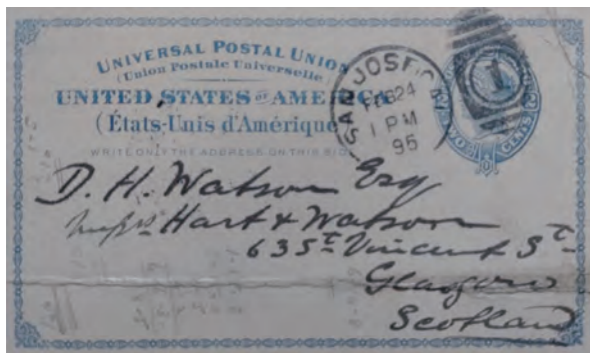 UNIVERSAL POSTAL UNION
(Union Postale Universelle)
UNITED STATES OF AMERICA
(États-Unis d'Amérique
WRITE ONLY THE ADDRESS ON THIS SIDE
SAN JOSE, CAL
FEB 24
1 PM
95
1
TWO CENTS
D. H. Watson Esq
Messrs Hart & Watson
63 St Vincent St
Glasgow
Scotland